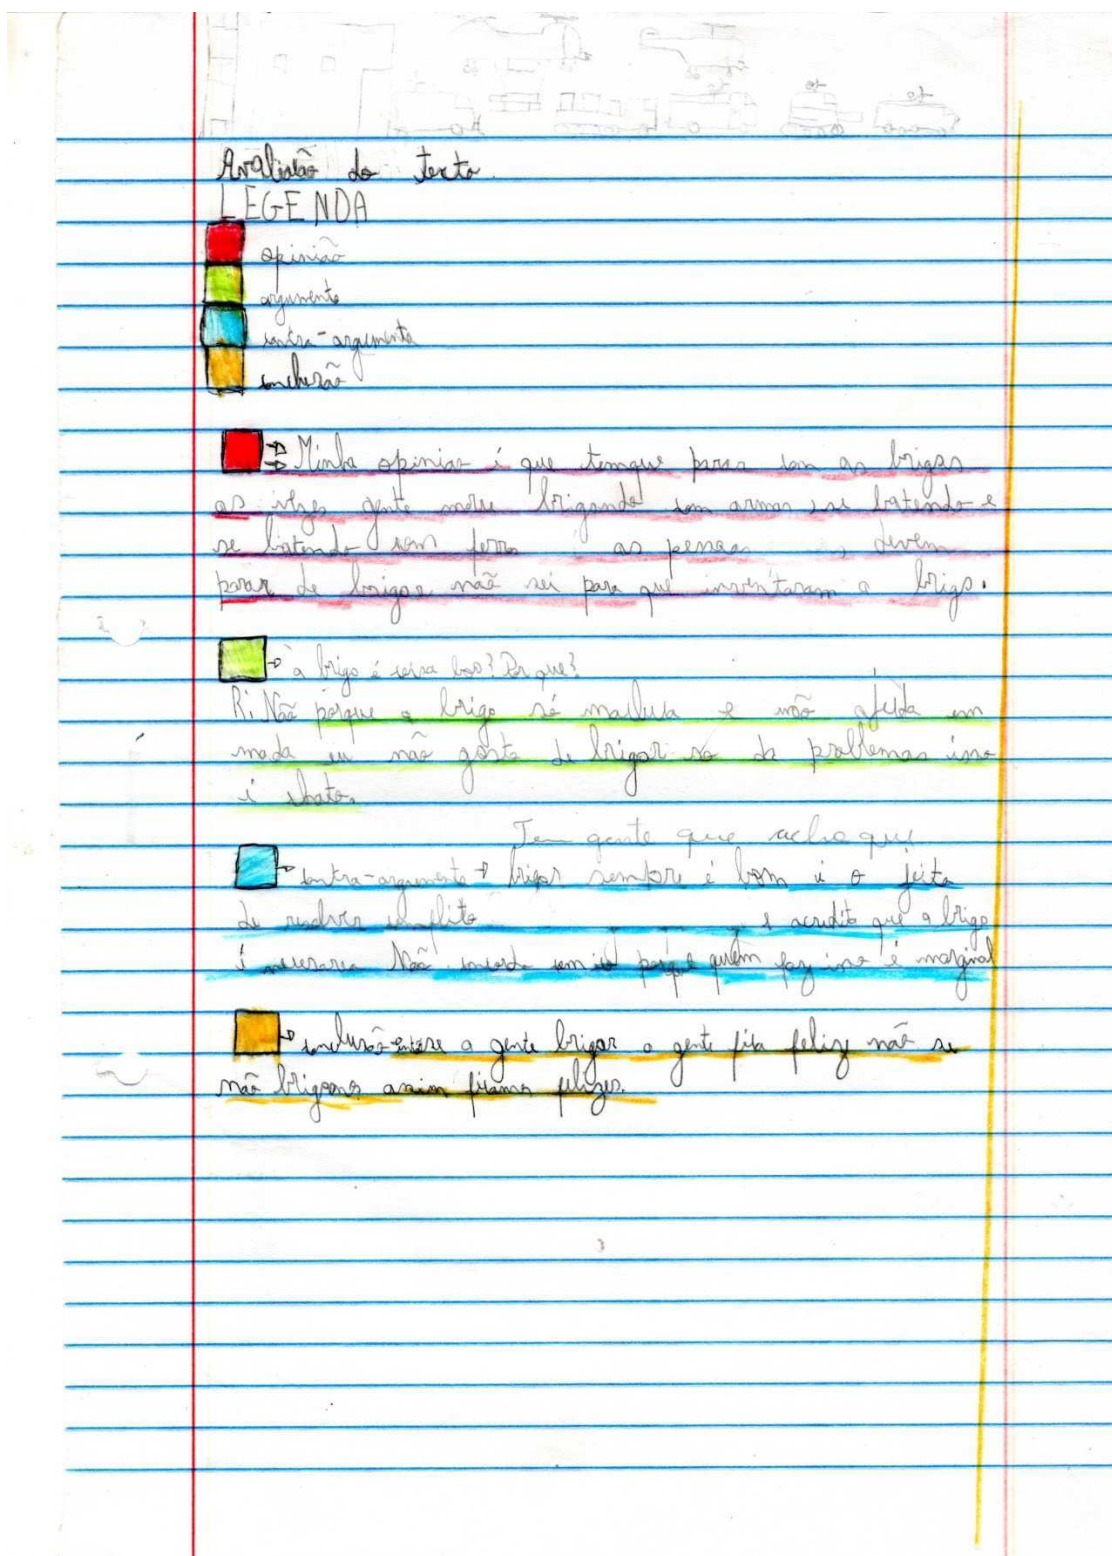 Avaliasão do texto
LEGENDA
opinião
argumento
contra-argumento
conclusão
Minha opinião é que temque parar com as brigas
as vezes gente morre brigando com armas e se batendo e
se batendo com ferro as pessoas devem
parar de brigar não sei para que inventaram a briga.
a briga é coisa boa? Por que?
R: Não porque a briga só maxuca e não ajuda em
nada eu não gosto de brigar so da problemas isso
é chato.
Tem gente que acha que
contra-argumento brigar sempre é bom é o jeito
de resolver conflito e acredita que a briga
é necesaria Não concordo com porque quem faz isso é marginal
conclusão se a gente brigar a gente fica feliz não se
não brigamos assim ficamos felizes.